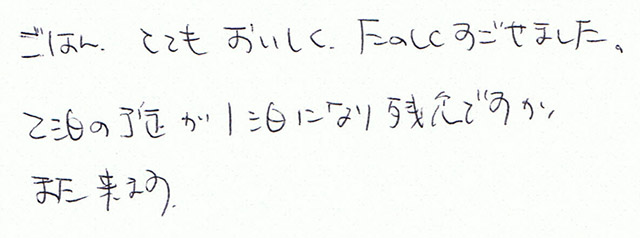 ごはん、とても おいしく、たのしくすごせました。
2泊の予定が1泊になり残念ですが、
また来ます。